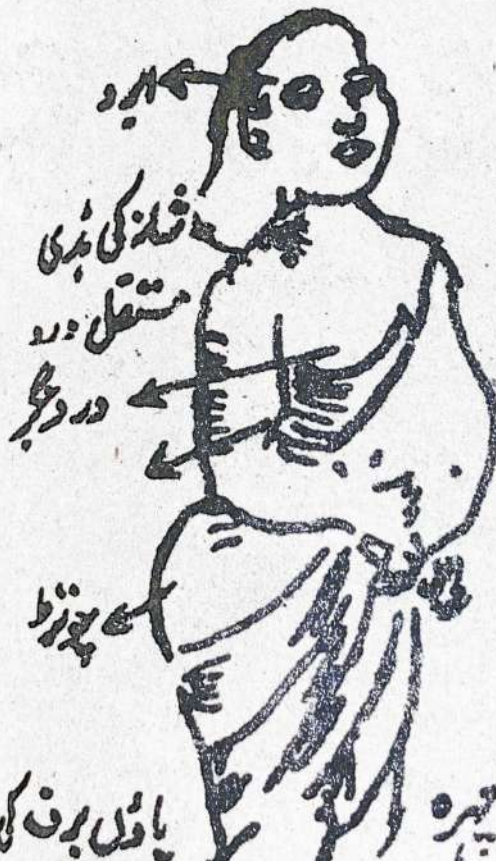 ابرو
شانہ کی ہڈی
مستقل درد
درد جگر
چوتڑ
پاؤں برف کی
چہرہ